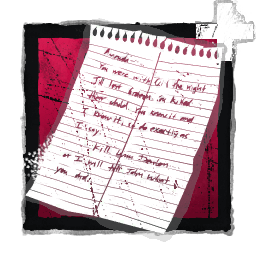 Amanda
You were with Cecil the night
Jill lost Gideon. You killed
their child. You know it and
I know it, so do exactly as
I say.
Kill Lynn Denlon
or I will tell John what
you did.